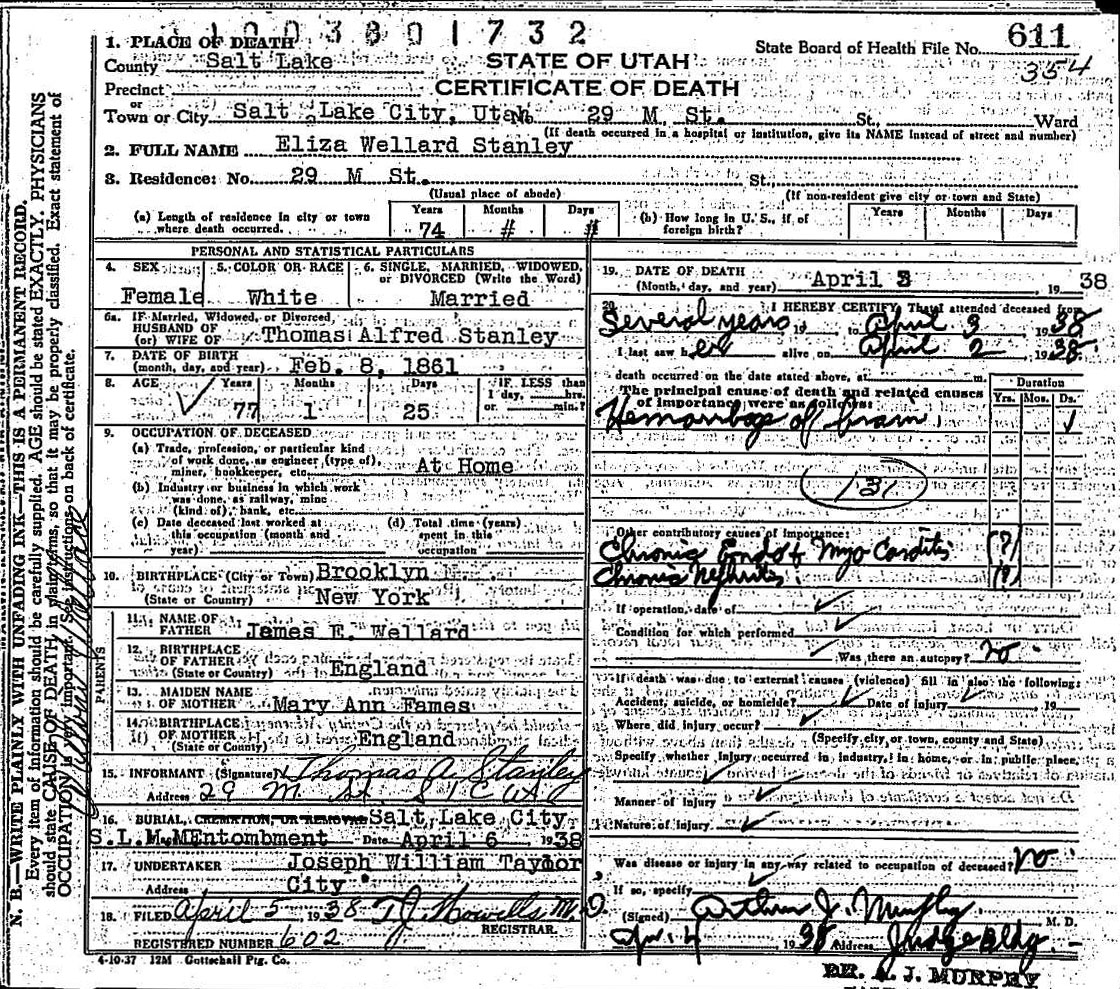 1003801732
1. PLACE OF DEATH
State Board of Health File No. 611
County Salt Lake
STATE OF UTAH
354
Precinct
CERTIFICATE OF DEATH
or
Town or City Salt Lake City, Utah No. 29 M St. St., Ward
(If death occurred in a hospital or institution, give its NAME instead of street and number)
2. FULL NAME Eliza Wellard Stanley
3. Residence: No. 29 M St. St.
(Usual place of abode) (If non-resident give city or town and State)
(a) Length of residence in city or town where death occurred. Years 74 Months # Days #
(b) How long in U. S., if of foreign birth? Years Months Days
PERSONAL AND STATISTICAL PARTICULARS
4. SEX Female
5. COLOR OR RACE White
6. SINGLE, MARRIED, WIDOWED, or DIVORCED (Write the Word) Married
6a. If Married, Widowed, or Divorced,
HUSBAND OF
(or) WIFE OF Thomas Alfred Stanley
7. DATE OF BIRTH
(month, day, and year) Feb. 8, 1861
8. AGE Years 77 Months 1 Days 25 IF LESS than 1 day, hrs. or min.?
9. OCCUPATION OF DECEASED
(a) Trade, profession, or particular kind
of work done, as engineer (type of),
miner, bookkeeper, etc. At Home
(b) Industry or business in which work
was done, as railway, mine
(kind of), bank, etc.
(c) Date deceased last worked at
this occupation (month and
year)
(d) Total time (years)
spent in this
occupation
10. BIRTHPLACE (City or Town) Brooklyn
(State or Country) New York
PARENTS
11. NAME OF
FATHER James E. Wellard
12. BIRTHPLACE
OF FATHER
(State or Country) England
13. MAIDEN NAME
OF MOTHER Mary Ann Fames
14. BIRTHPLACE
OF MOTHER
(State or Country) England
15. INFORMANT (Signature) Thomas A. Stanley
Address 29 M St. S L C
16. BURIAL, CREMATION, OR REMOVAL Salt Lake City
S.L.M.MEntombment Date April 6 1938
17. UNDERTAKER Joseph William Taylor
Address City
18. FILED April 5 1938 T.J. Howells M.D.
REGISTRAR.
REGISTERED NUMBER 602
4-10-37 12M Gottschall Ptg. Co.
19. DATE OF DEATH
(Month, day, and year) April 3 1938
20. I HEREBY CERTIFY, That I attended deceased from
Several years 19 to April 3 1938
I last saw her alive on April 2 1938
death occurred on the date stated above, at m.
The principal cause of death and related causes
of importance were as follows:
Duration
Yrs. Mos. Ds.
Hemorrhage of brain 1
131
Other contributory causes of importance:
Chronic Endo & Myo Carditis (?)
Chronic Nephritis (?)
If operation, date of
Condition for which performed
Was there an autopsy? no
If death was due to external causes (violence) fill in also the following:
Accident, suicide, or homicide? Date of injury 19
Where did injury occur?
(Specify city, or town, county and State)
Specify whether injury occurred in industry, in home, or in public place.
Manner of injury
Nature of injury
Was disease or injury in any way related to occupation of deceased? no
If so, specify
(Signed) Arthur J. Murphy M. D.
Apr. 4 1938 Address Judge Bldg.
DR. A. J. MURPHY
N. B.—WRITE PLAINLY WITH UNFADING INK—THIS IS A PERMANENT RECORD.
Every item of information should be carefully supplied. AGE should be stated EXACTLY. PHYSICIANS
should state CAUSE OF DEATH in plain terms, so that it may be properly classified. Exact statement of
OCCUPATION is very important. See instructions on back of certificate.